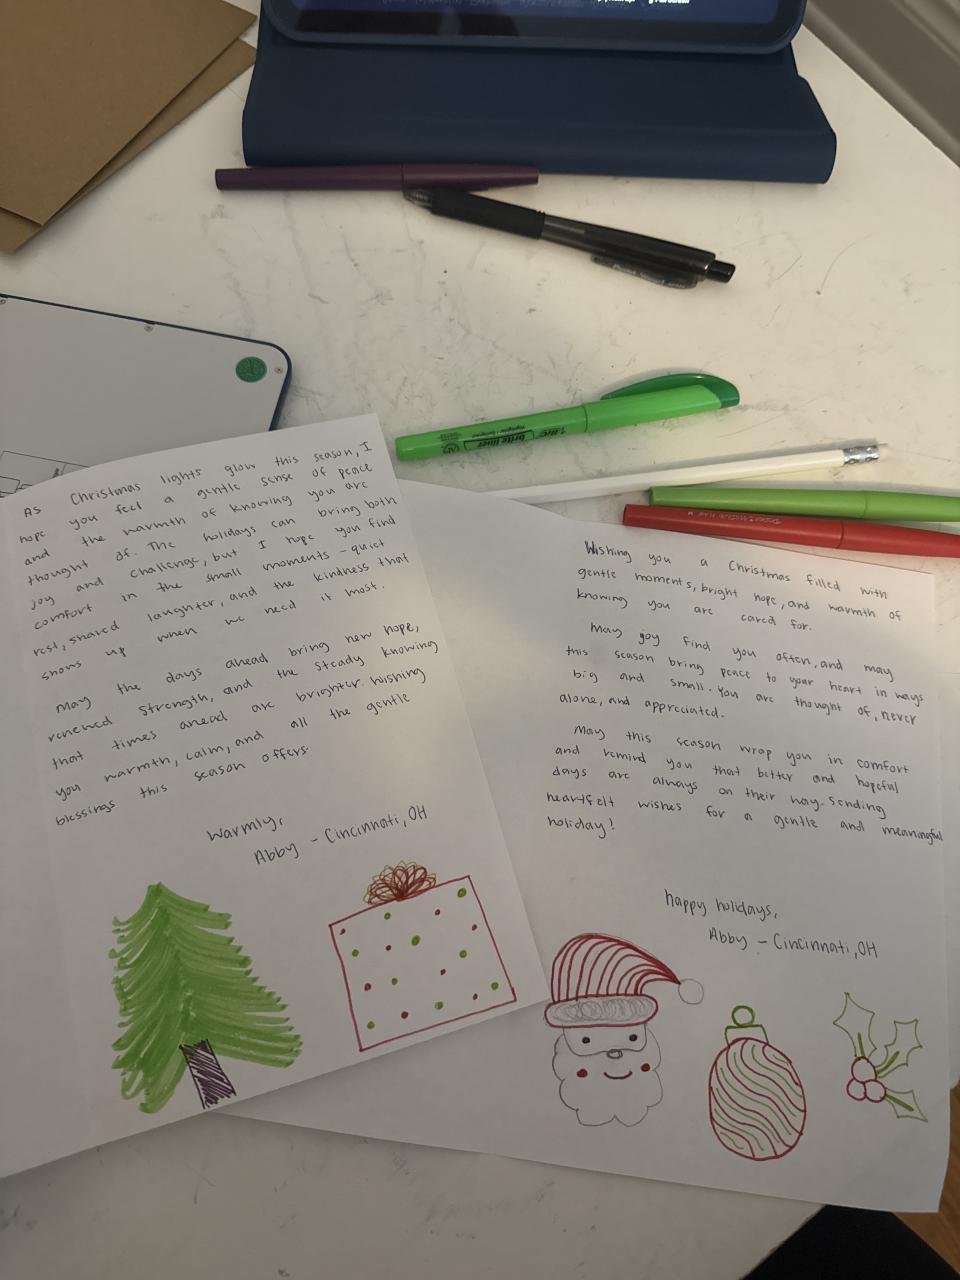 BIC
brite liner
Highlighter · Surligneur
As Christmas lights glow this season, I
hope you feel a gentle sense of peace
and the warmth of knowing you are
thought of. The holidays can bring both
joy and challenge, but I hope you find
comfort in the small moments - quiet
rest, shared laughter, and the kindness that
shows up when we need it most.
May the days ahead bring new hope,
renewed strength, and the steady knowing
that times ahead are brighter. Wishing
you warmth, calm, and all the gentle
blessings this season offers.
Warmly,
Abby - Cincinnati, OH
Wishing you a Christmas filled with
gentle moments, bright hope, and warmth of
knowing you are cared for.
May joy find you often, and may
this season bring peace to your heart in ways
big and small. You are thought of, never
alone, and appreciated.
May this season wrap you in comfort
and remind you that better and hopeful
days are always on their way. Sending
heartfelt wishes for a gentle and meaningful
holiday!
happy holidays,
Abby - Cincinnati, OH